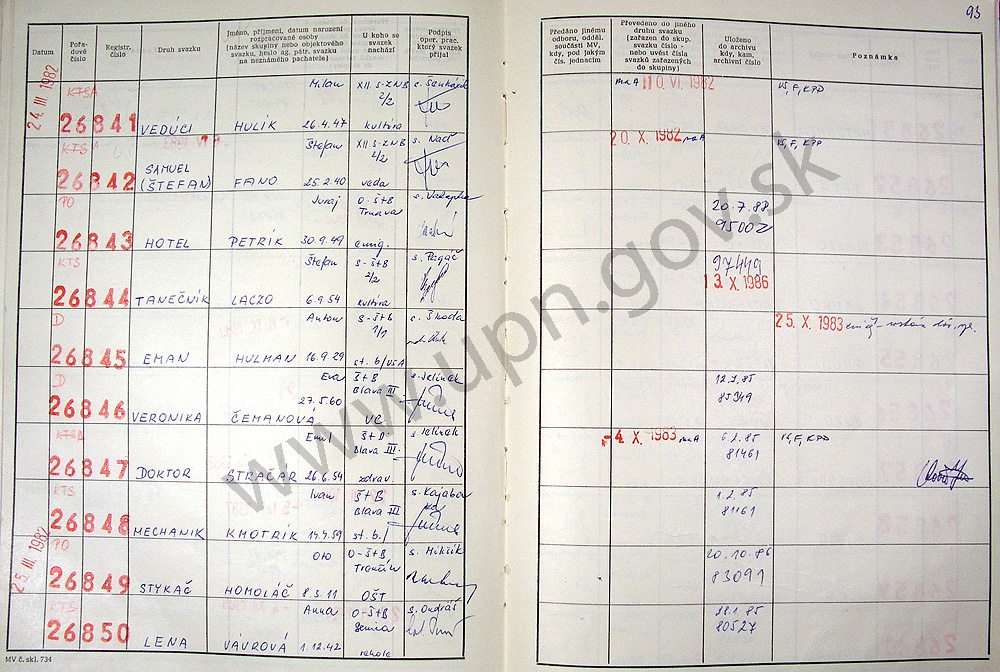 93
Datum
Pořa-
dové
číslo
Registr.
číslo
Druh svazku
Jméno, příjmení, datum narození
rozpracované osoby
(název skupiny nebo objektového
svazku, heslo ag. pátr. svazku
na neznámého pachatele)
U koho se
svazek
nachází
Podpis
oper. prac.
který svazek
přijal
Předáno jinému
odboru, odděl.
součásti MV,
kdy, pod jakým
čís. jednacím
Převedeno do jiného
druhu svazku
(zařazen do skup.
svazku číslo -
nebo uvést čísla
svazků zařazených
do skupiny)
Uloženo
do archivu
kdy, kam,
archivní číslo
Poznámka
24. III. 1982
KTSA
26841
VEDÚCI
Milan
HULÍK 26.4.47
XII S-ZNB
2/2
kultúra
10. VI. 1982
KTS A
26842
SAMUEL
(ŠTEFAN)
Štefan
FANO 25.2.40
XII S-ZNB
2/2
veda
20. X. 1982
PO
26843
HOTEL
Juraj
PETRÍK 30.9.49
O-ŠtB
Trnava
emig.
20.7.88
95002
KTS
26844
TANEČNÍK
Štefan
LACZO 6.9.54
S-ŠtB
2/2
kultúra
s. Pagáč
97449
13. X. 1986
D
26845
EMAN
Anton
HULMAN 16.9.29
S-ŠtB
1/1
st. b/USA
s. Škoda
25. X. 1983
D
26846
VERONIKA
Eva
27.5.60
ČEMANOVÁ
ŠtB
Blava III
VC
s. Jelínek
85349
KTSB
26847
DOKTOR
Emil
STRAČÁR 26.6.54
ŠtB
Blava III.
zdrav.
s. Jelínek
-4. X. 1983
81461
KTS
26848
MECHANIK
Ivan
KMOTRÍK 14.4.59
ŠtB
Blava III
st. b./
1.2.85
81161
25. III. 1982
PO
26849
STYKAČ
Oto
HOMOLÁČ 8.3.11
O-ŠtB,
Trenčín
OŠT
s. Mikšík
20.10.86
83091
KTS
26850
LENA
Anna
VÁVROVÁ 1.12.42
O-ŠtB
Senica
rehole
s. Ondráš
80527
MV č. skl. 734
www.upn.gov.sk